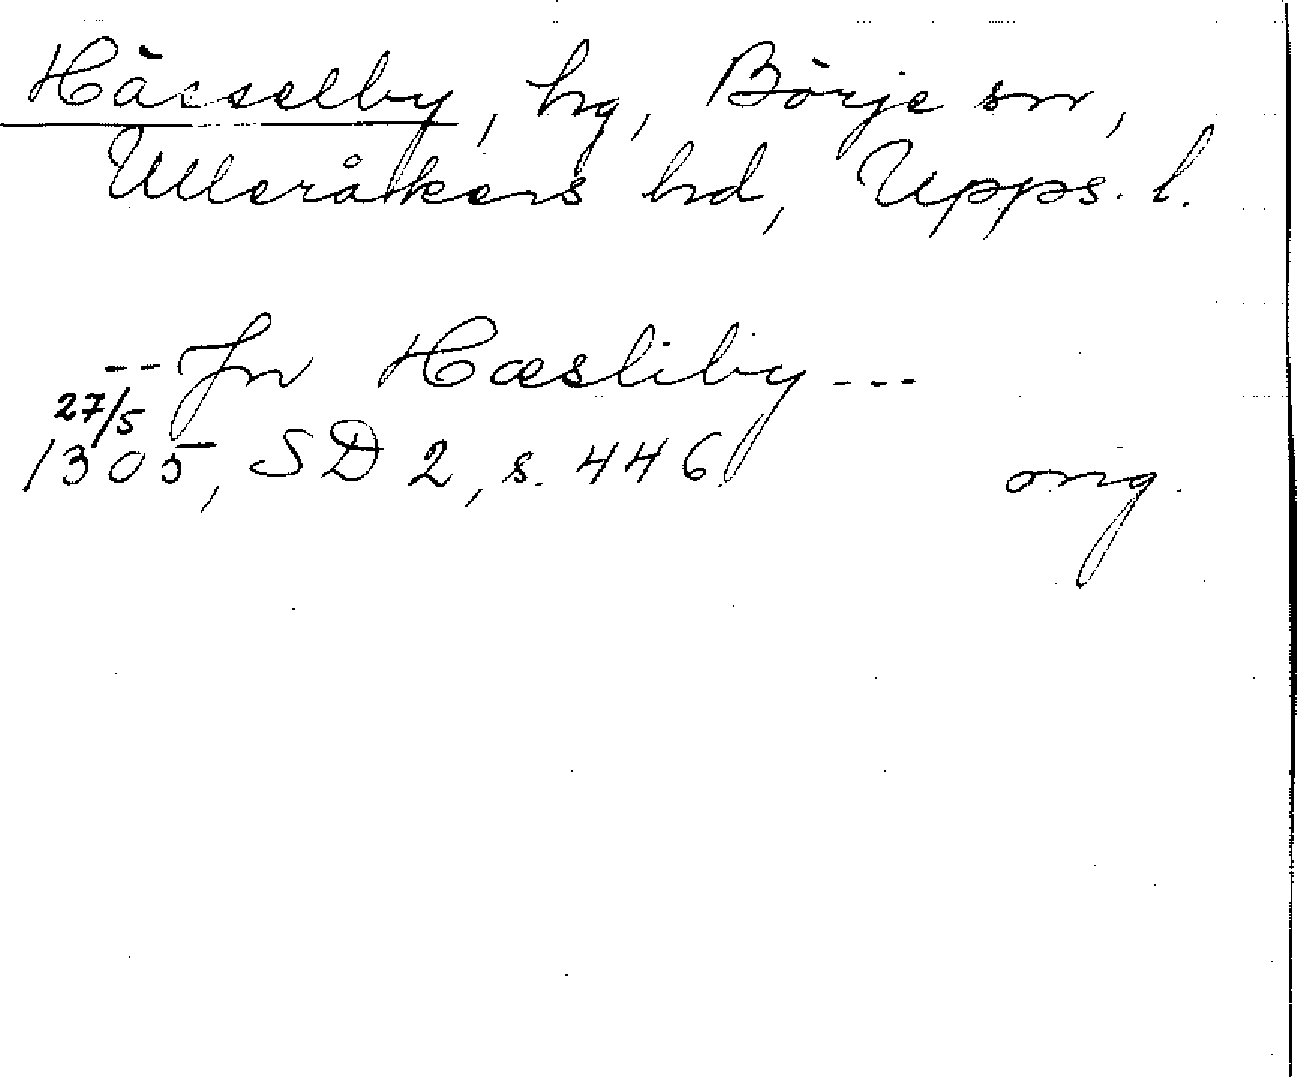 Hässelby, hg, Börje sn,
Ulleråkers hd, Upps. l.
-- Jn Hæsliby ---
27/5
1305, SD 2, s. 446. orig.